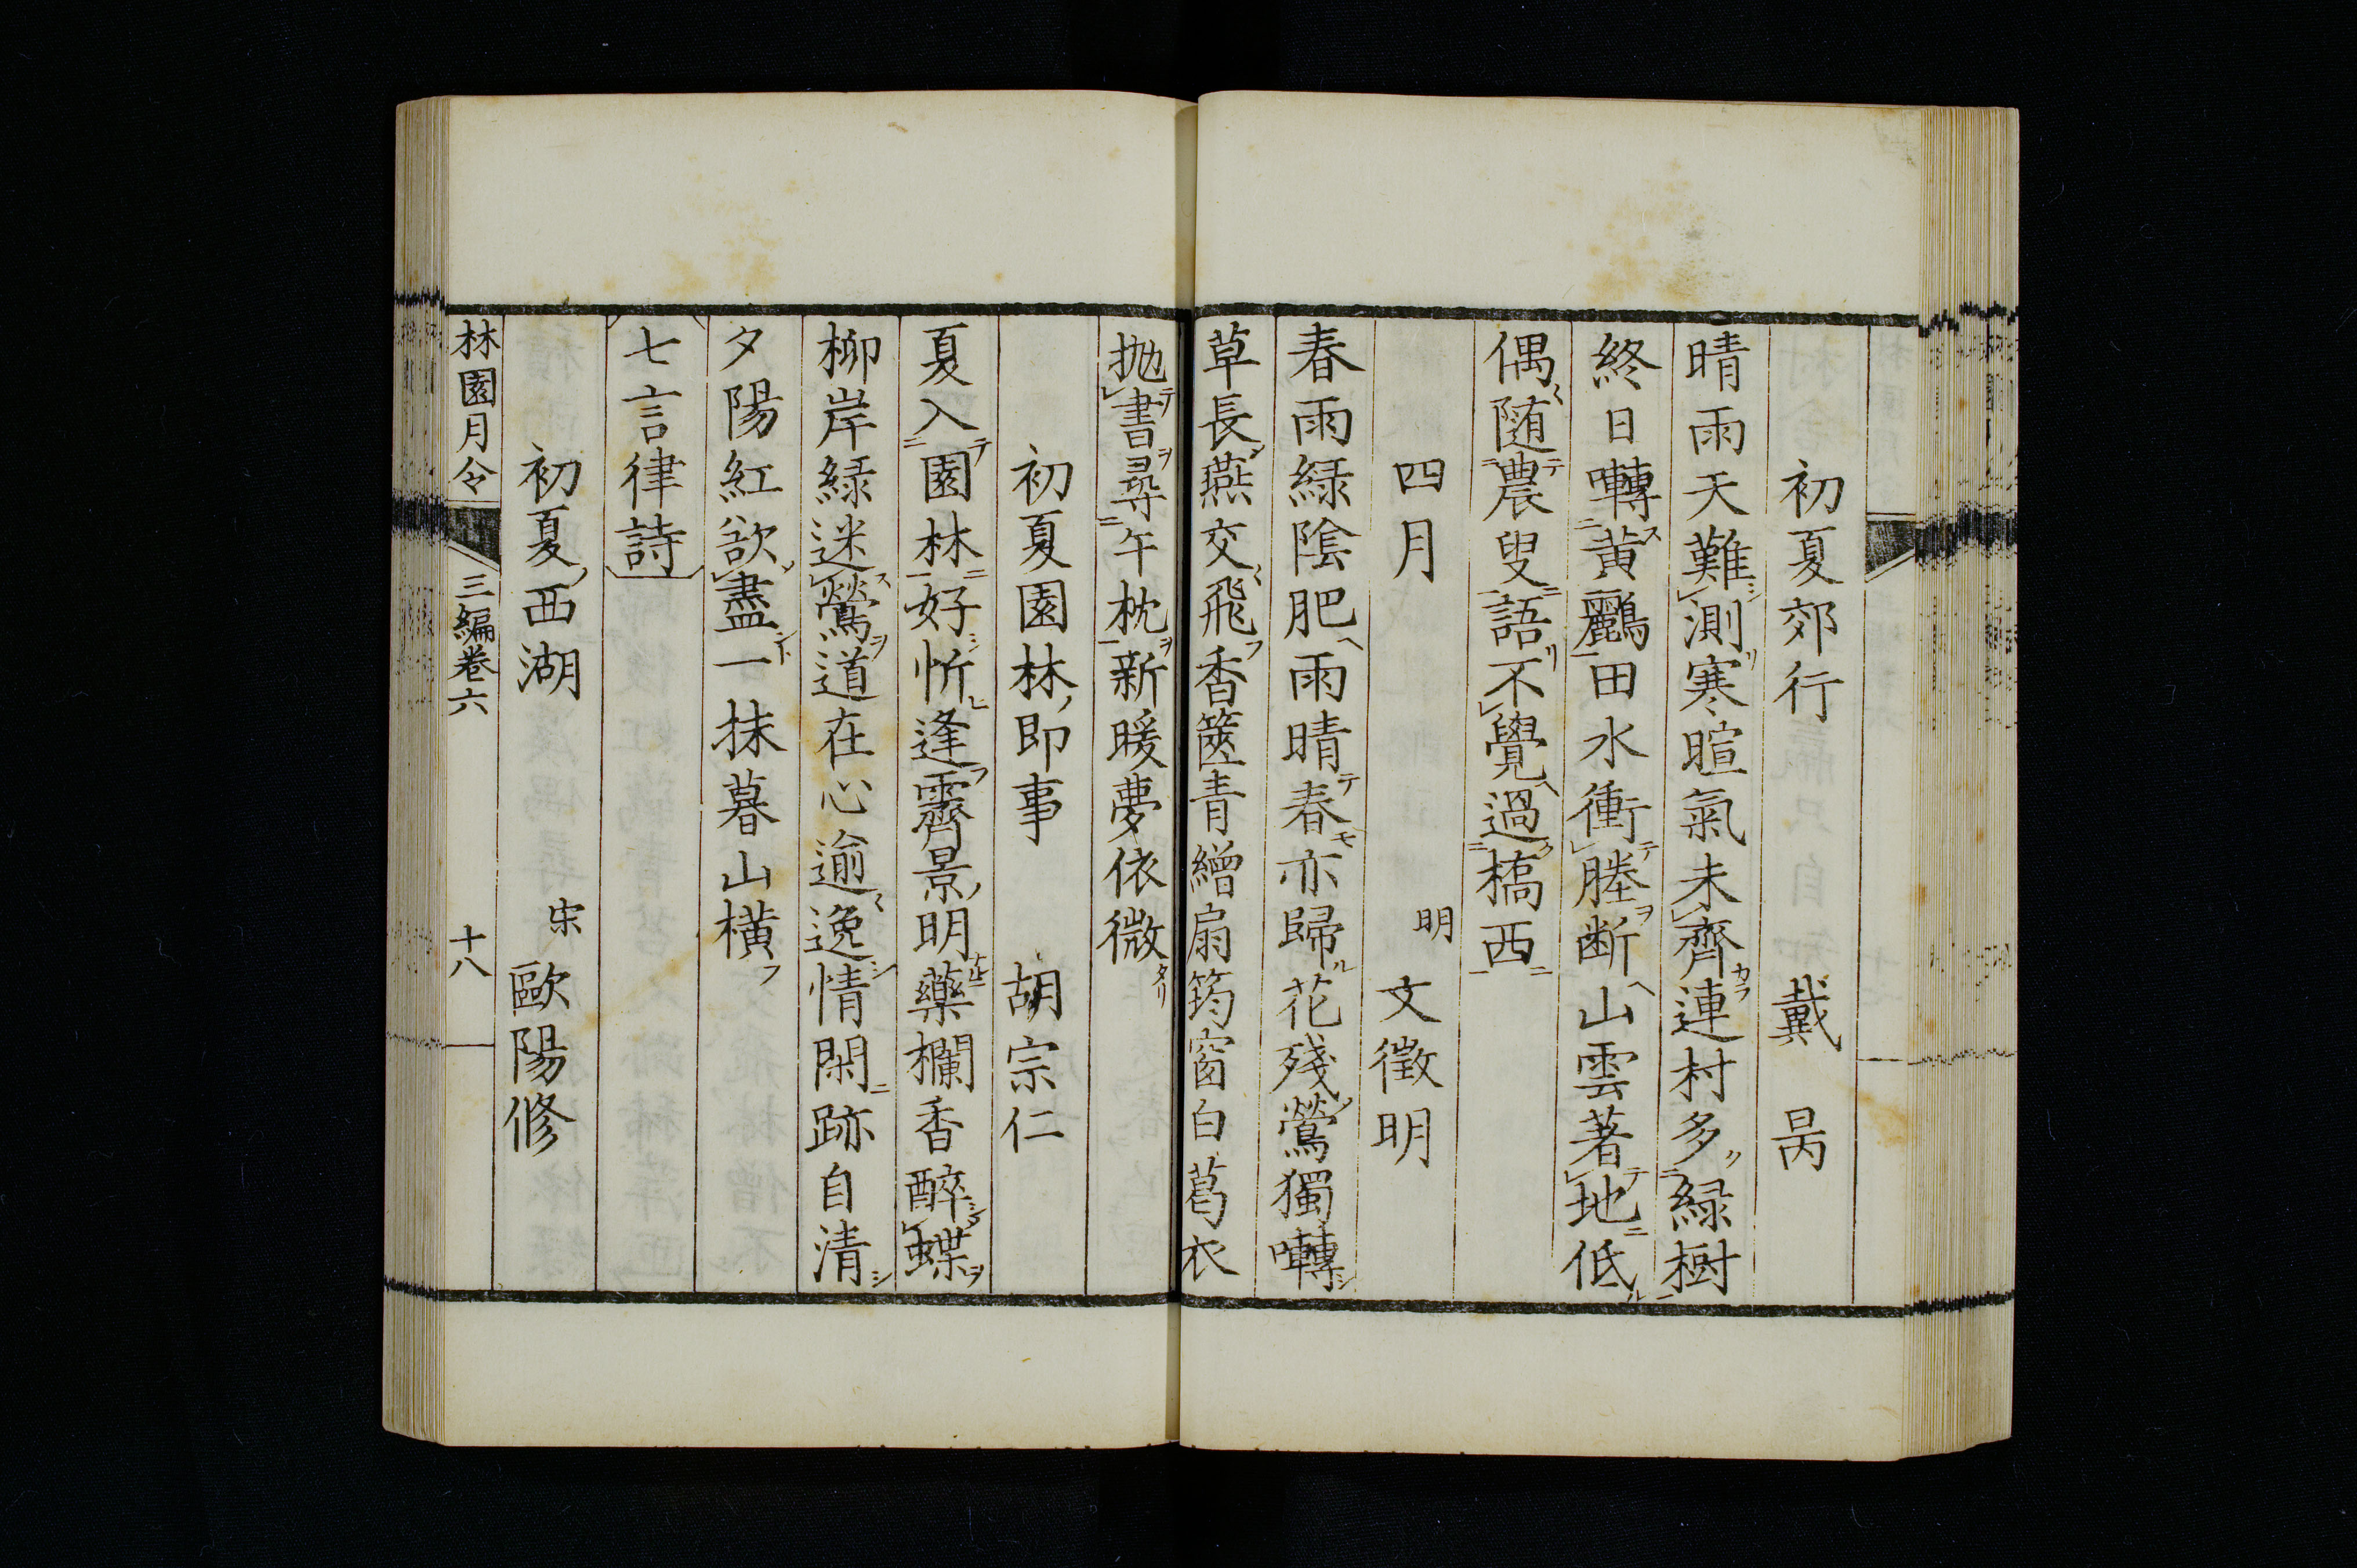 初夏郊行　戴　昺
晴雨天難測寒暄氣未齊連村多緑樹
終日囀黄鸝田水衝塍断山雲著地低
偶随農叟語不覺過橋西
四月　明　文徴明
春雨緑陰肥雨晴春亦歸花残鶯獨囀
草長燕交飛香篋青繒扇筠窗白葛衣
拋書尋午枕新暖夢依微
初夏園林即事　胡宗仁
夏入園林好忻逢霽景明藥欄香醉蝶
柳岸緑迷鶯道在心逾逸情閑跡自清
夕陽紅欲盡一抹暮山横
七言律詩
初夏西湖　宋　歐陽修
林園月令　三編卷六　十八